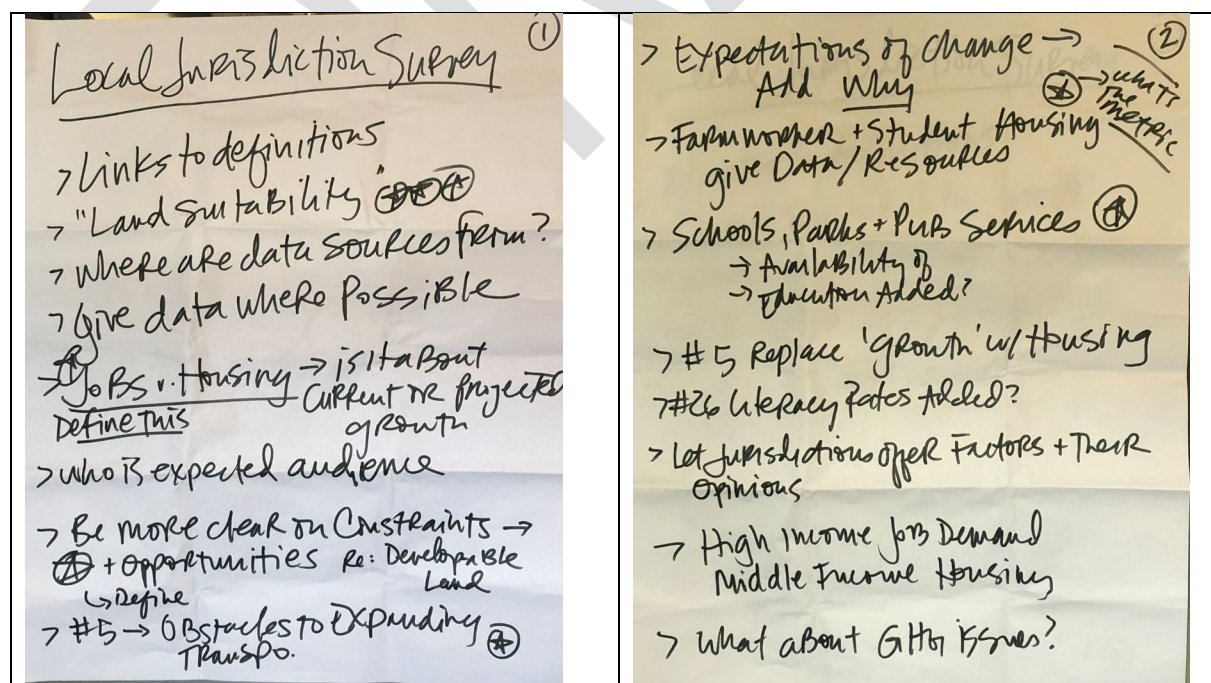 ①
Local Jurisdiction Survey
> Links to definitions
> "Land Suitability"
> Where are data sources from?
> Give data where possible
> Jobs v. Housing → is it about
Define this
current or projected
growth
> who is expected audience
> Be more clear on Constraints →
+ opportunities Re: Developable
Land
↳ Define
> #5 → Obstacles to Expanding
Transpo.
②
> Expectations of change →
Add Why
→ what's
the
metric
> Farmworker + Student Housing
give Data/Resources
> Schools, Parks + Pub Services
→ Availability of
→ Education Added?
> #5 Replace 'growth' w/ Housing
> #26 literacy Rates Added?
> Let Jurisdictions offer Factors + Their
Opinions
> High Income Job Demand
Middle Income Housing
> What about GHG issues?